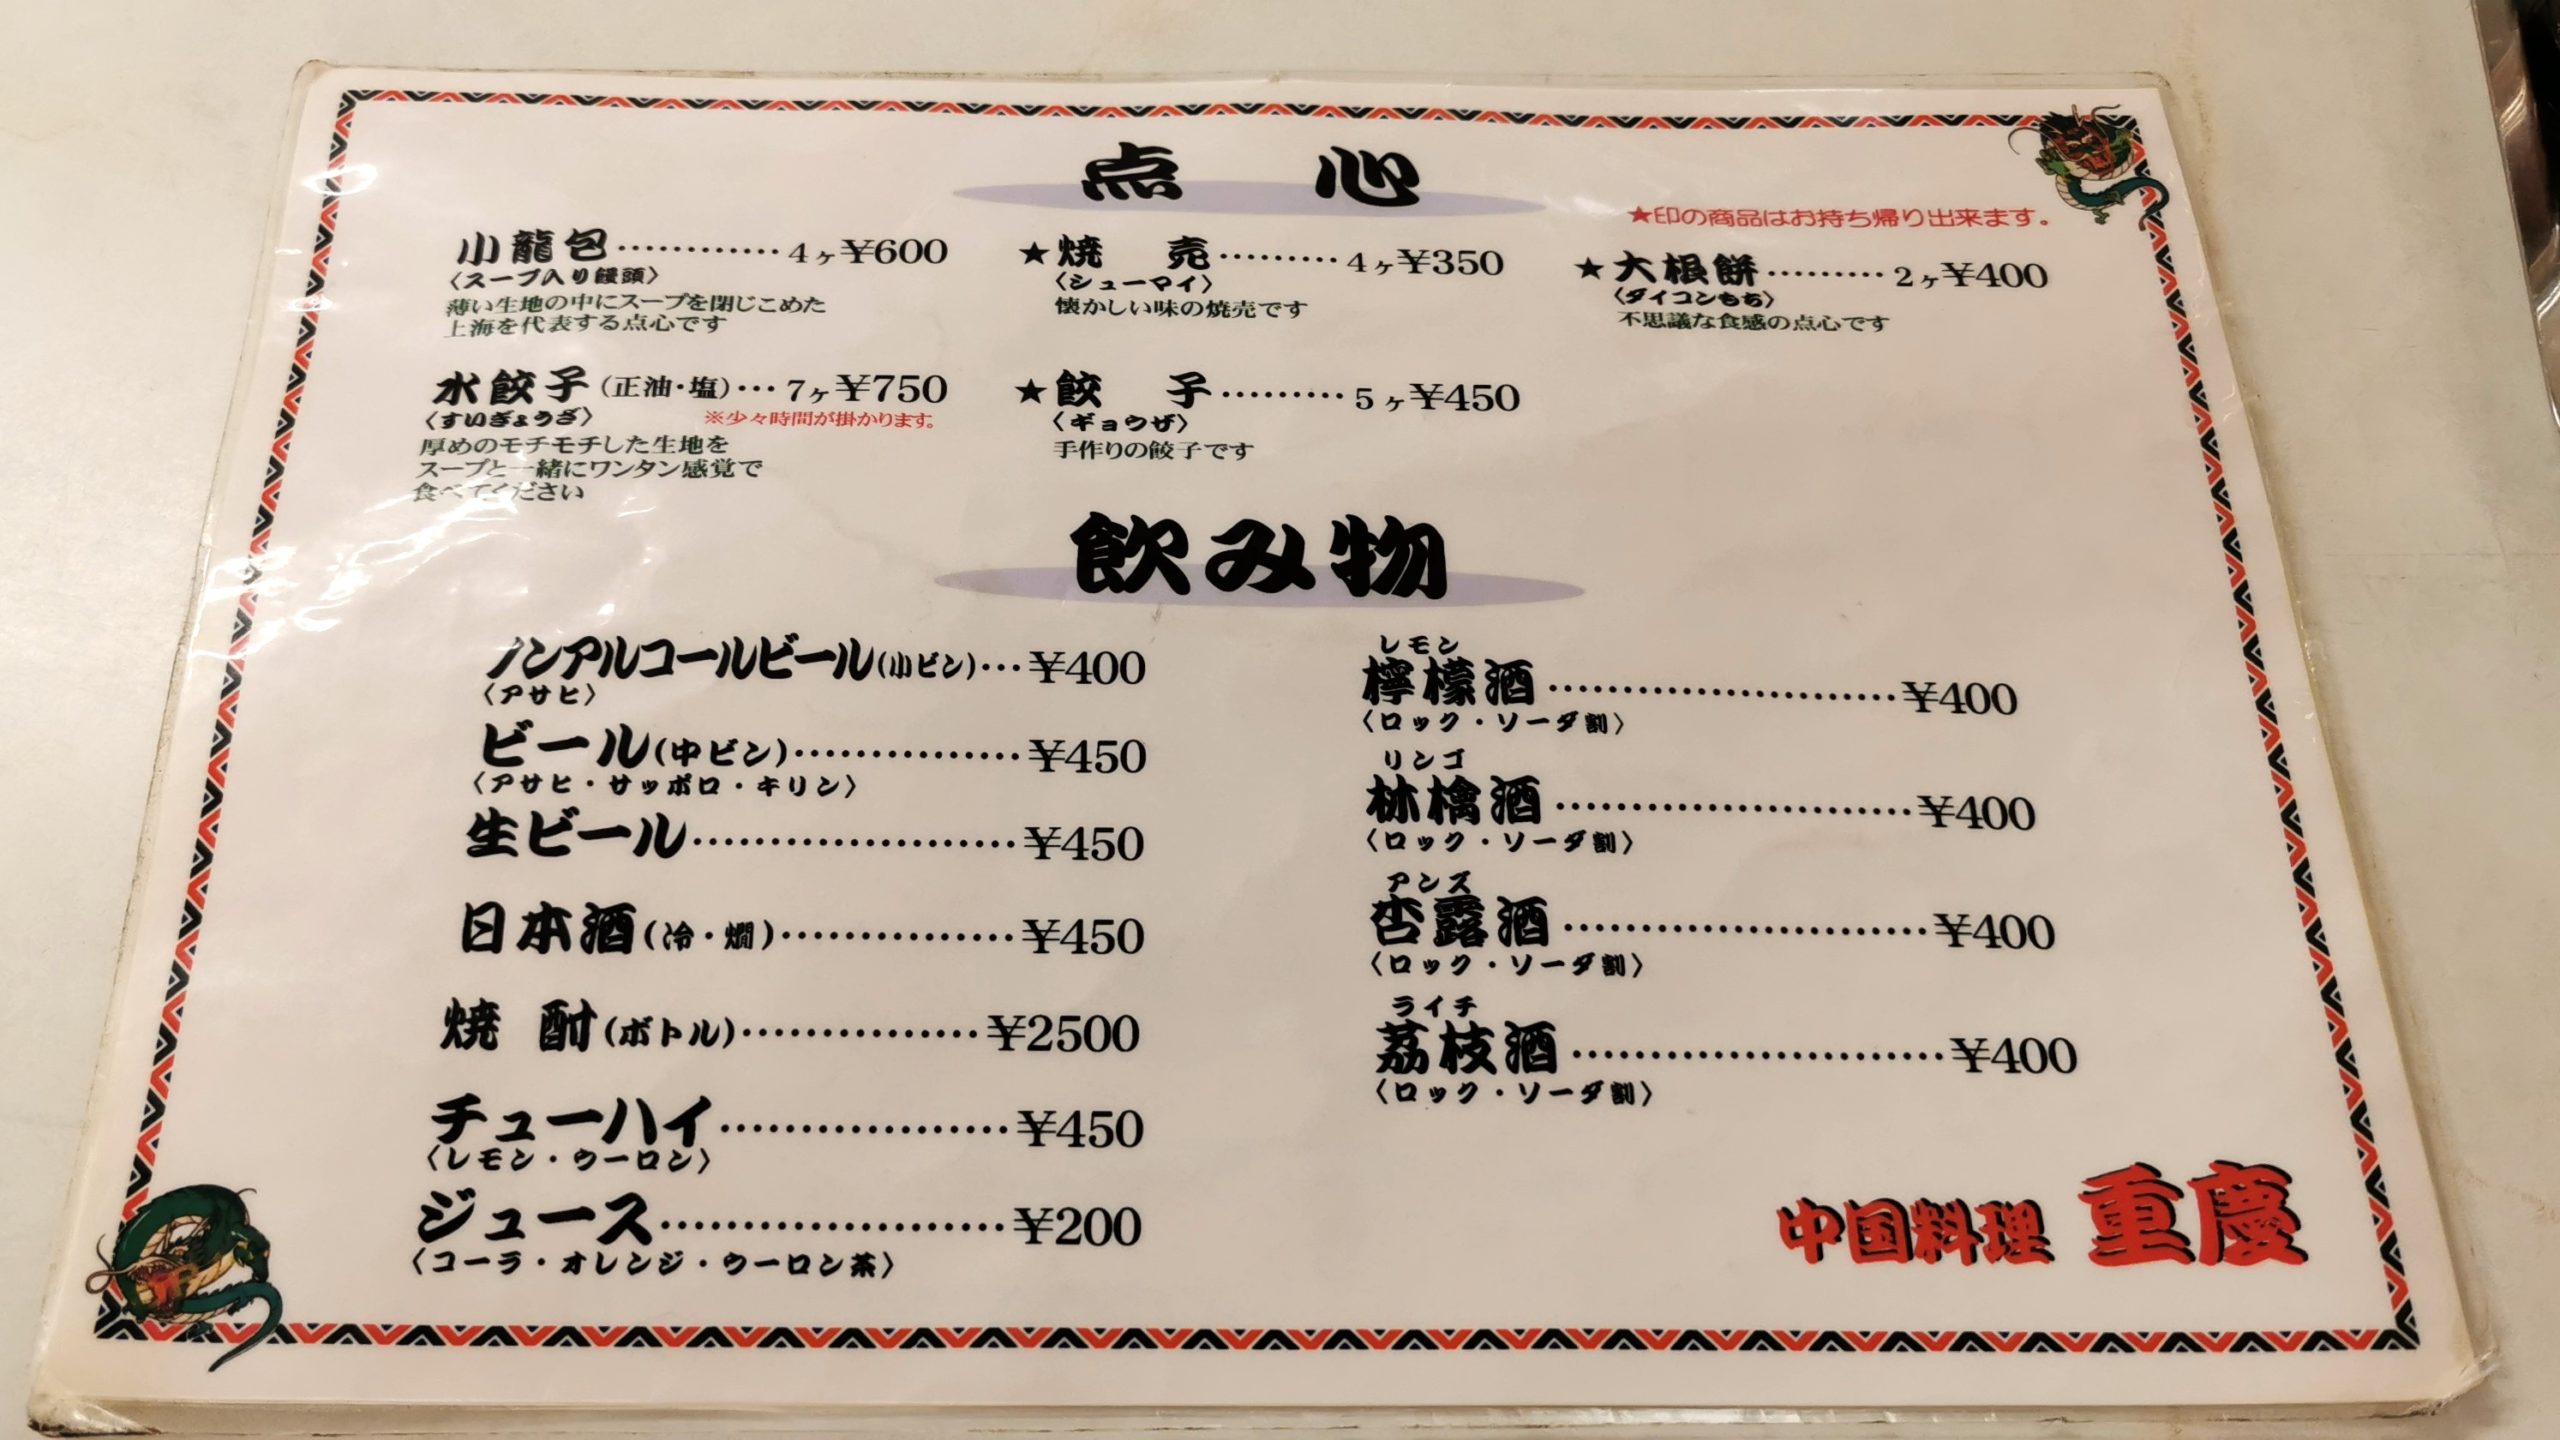 点 心
★印の商品はお持ち帰り出来ます。
小龍包…………4ヶ¥600
〈スープ入り饅頭〉
薄い生地の中にスープを閉じこめた
上海を代表する点心です
★焼 売………4ヶ¥350
〈シューマイ〉
懐かしい味の焼売です
★大根餅………2ヶ¥400
〈ダイコンもち〉
不思議な食感の点心です
水餃子(正油・塩)…7ヶ¥750
〈すいぎょうざ〉 ※少々時間が掛かります。
厚めのモチモチした生地を
スープと一緒にワンタン感覚で
食べてください
★餃 子………5ヶ¥450
〈ギョウザ〉
手作りの餃子です
飲み物
ノンアルコールビール(小ビン)…¥400
〈アサヒ〉
ビール(中ビン)……………¥450
〈アサヒ・サッポロ・キリン〉
生ビール…………………¥450
日本酒(冷・燗)……………¥450
焼 酎(ボトル)……………¥2500
チューハイ………………¥450
〈レモン・ウーロン〉
ジュース…………………¥200
〈コーラ・オレンジ・ウーロン茶〉
レモン
檸檬酒……………………¥400
〈ロック・ソーダ割〉
リンゴ
林檎酒……………………¥400
〈ロック・ソーダ割〉
アンズ
杏露酒……………………¥400
〈ロック・ソーダ割〉
ライチ
荔枝酒……………………¥400
〈ロック・ソーダ割〉
中国料理 重慶